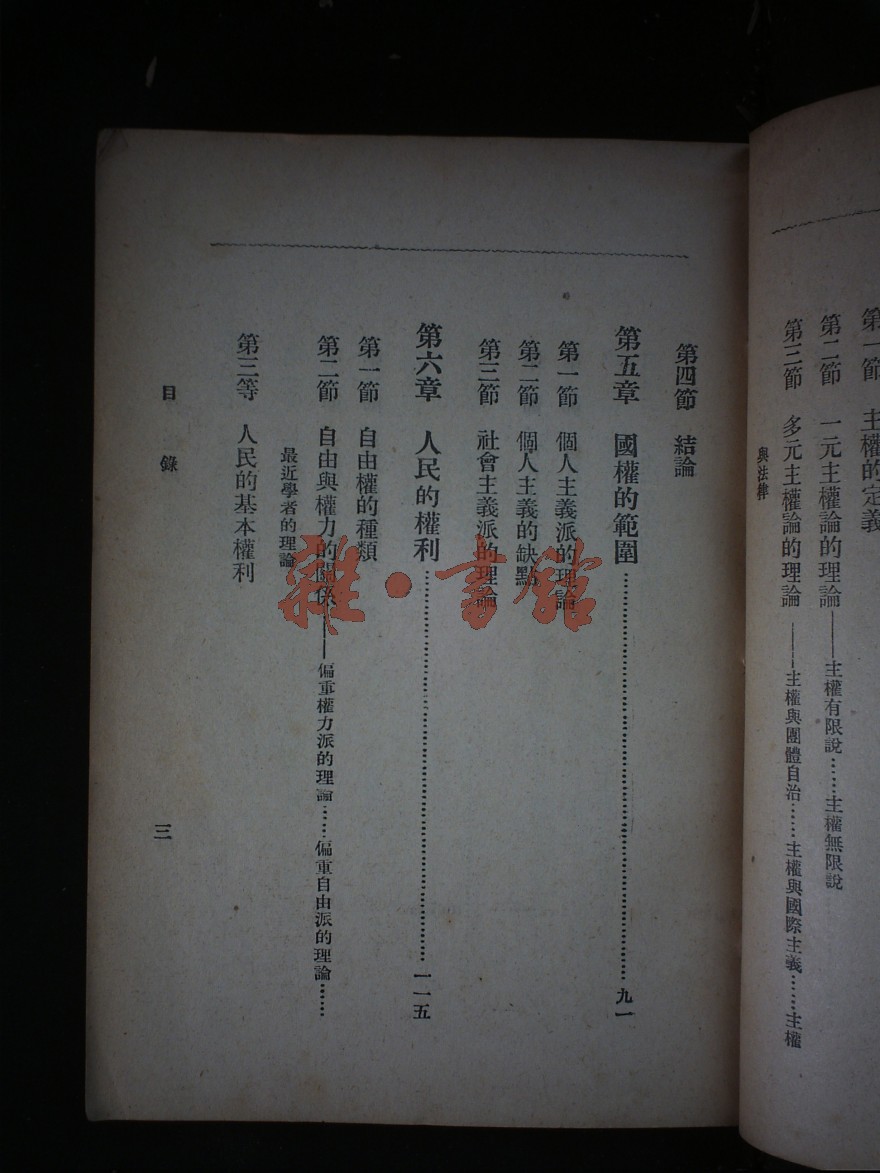 第一節 主權的定義
第二節 一元主權論的理論——主權有限說……主權無限說
第三節 多元主權論的理論——主權與團體自治……主權與國際主義……主權
與法律
第四節 結論
第五章 國權的範圍……九一
第一節 個人主義派的理論
第二節 個人主義的缺點
第三節 社會主義派的理論
第六章 人民的權利……一一五
第一節 自由權的種類
第二節 自由與權力的關係——偏重權力派的理論……偏重自由派的理論……
最近學者的理論
第三等 人民的基本權利
目錄
三
雜·書館